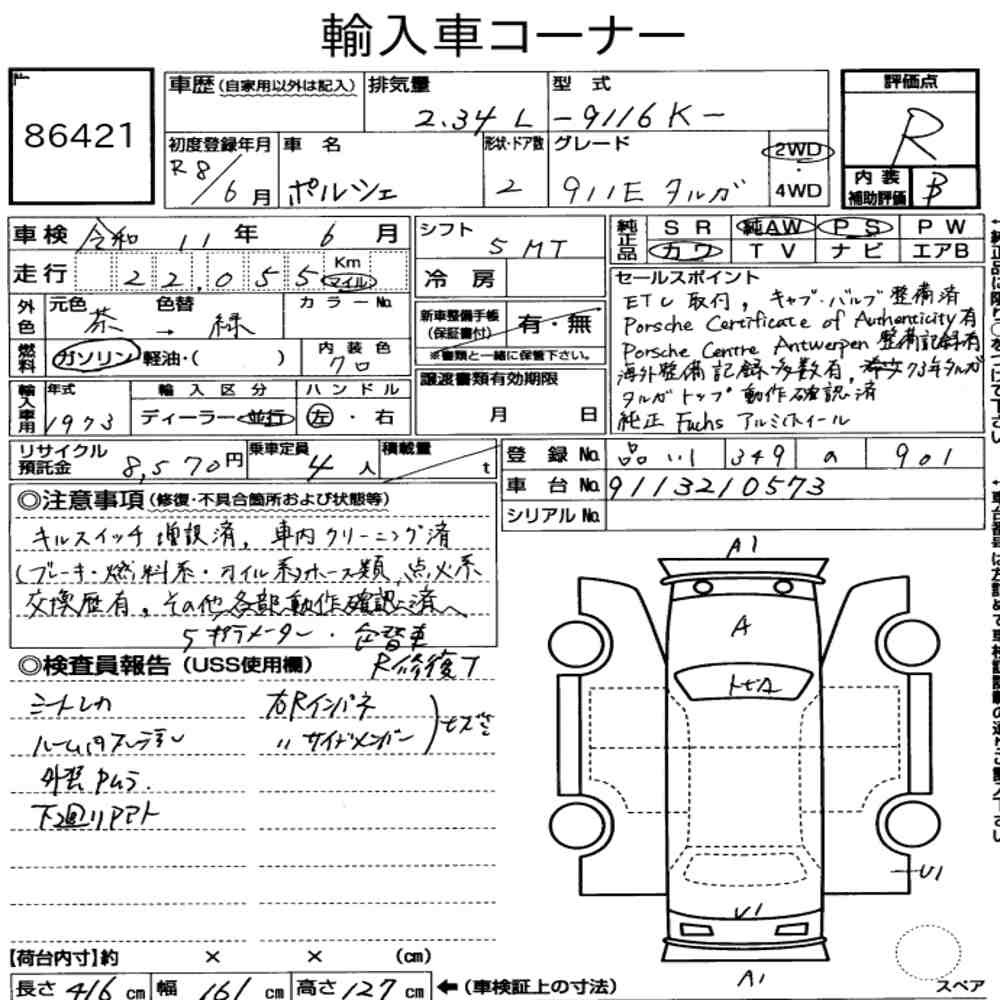 輸入車コーナー
86421
車歴(自家用以外は記入) 排気量 2.34 L 型式 -9116K-
評価点 R
初度登録年月 R8/6月 車名 ポルシェ 形状・ドア数 2 グレード 911E タルガ 2WD・4WD
内装補助評価 B
車検 令和 11年 6月
走行 22,055 Km マイル
シフト 5MT
冷房
純正品 SR 純AW PS PW
カワ TV ナビ エアB
外色 元色 茶 → 色替 緑 カラーNo.
燃料 ガソリン 軽油・( ) 内装色 クロ
新車整備手帳(保証書付) 有・無
※書類と一緒に保管下さい。
輸入車用 年式 1973 輸入区分 ディーラー・並行 ハンドル 左・右
譲渡書類有効期限 月 日
セールスポイント
ETC取付, キャブ・バルブ整備済
Porsche Certificate of Authenticity有
Porsche Centre Antwerpen 整備記録有
海外整備記録多数有, 希少73年タルガ
タルガトップ動作確認済
純正 Fuchs アルミホイール
リサイクル預託金 8,570円 乗車定員 4人 積載量 t
登録No. 品川 349 a 901
車台No. 9113210573
シリアルNo.
◎注意事項(修復・不具合箇所および状態等)
キルスイッチ増設済, 車内クリーニング済
(ブレーキ・燃料系・オイル系)ホース類, 点火系
交換歴有, その他各部動作確認済
5ギヤメーター・色替車
◎検査員報告(USS使用欄) R修復了
シートレカ
ルーム内
外装Pムラ.
下廻りPアト
右Rインパネ
〃サイドメンバー
A1
A
U1
U1
A1
スペア
【荷台内寸】約 × × (cm)
長さ 416 cm 幅 161 cm 高さ 127 cm ←(車検証上の寸法)